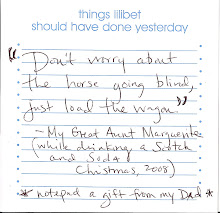 things lilibet
should have done yesterday
"Don't worry about
the horse going blind,
just load the wagon"
- My Great Aunt Marguerite
(while drinking a Scotch
and Soda
Christmas, 2008)
* notepad a gift from my Dad *